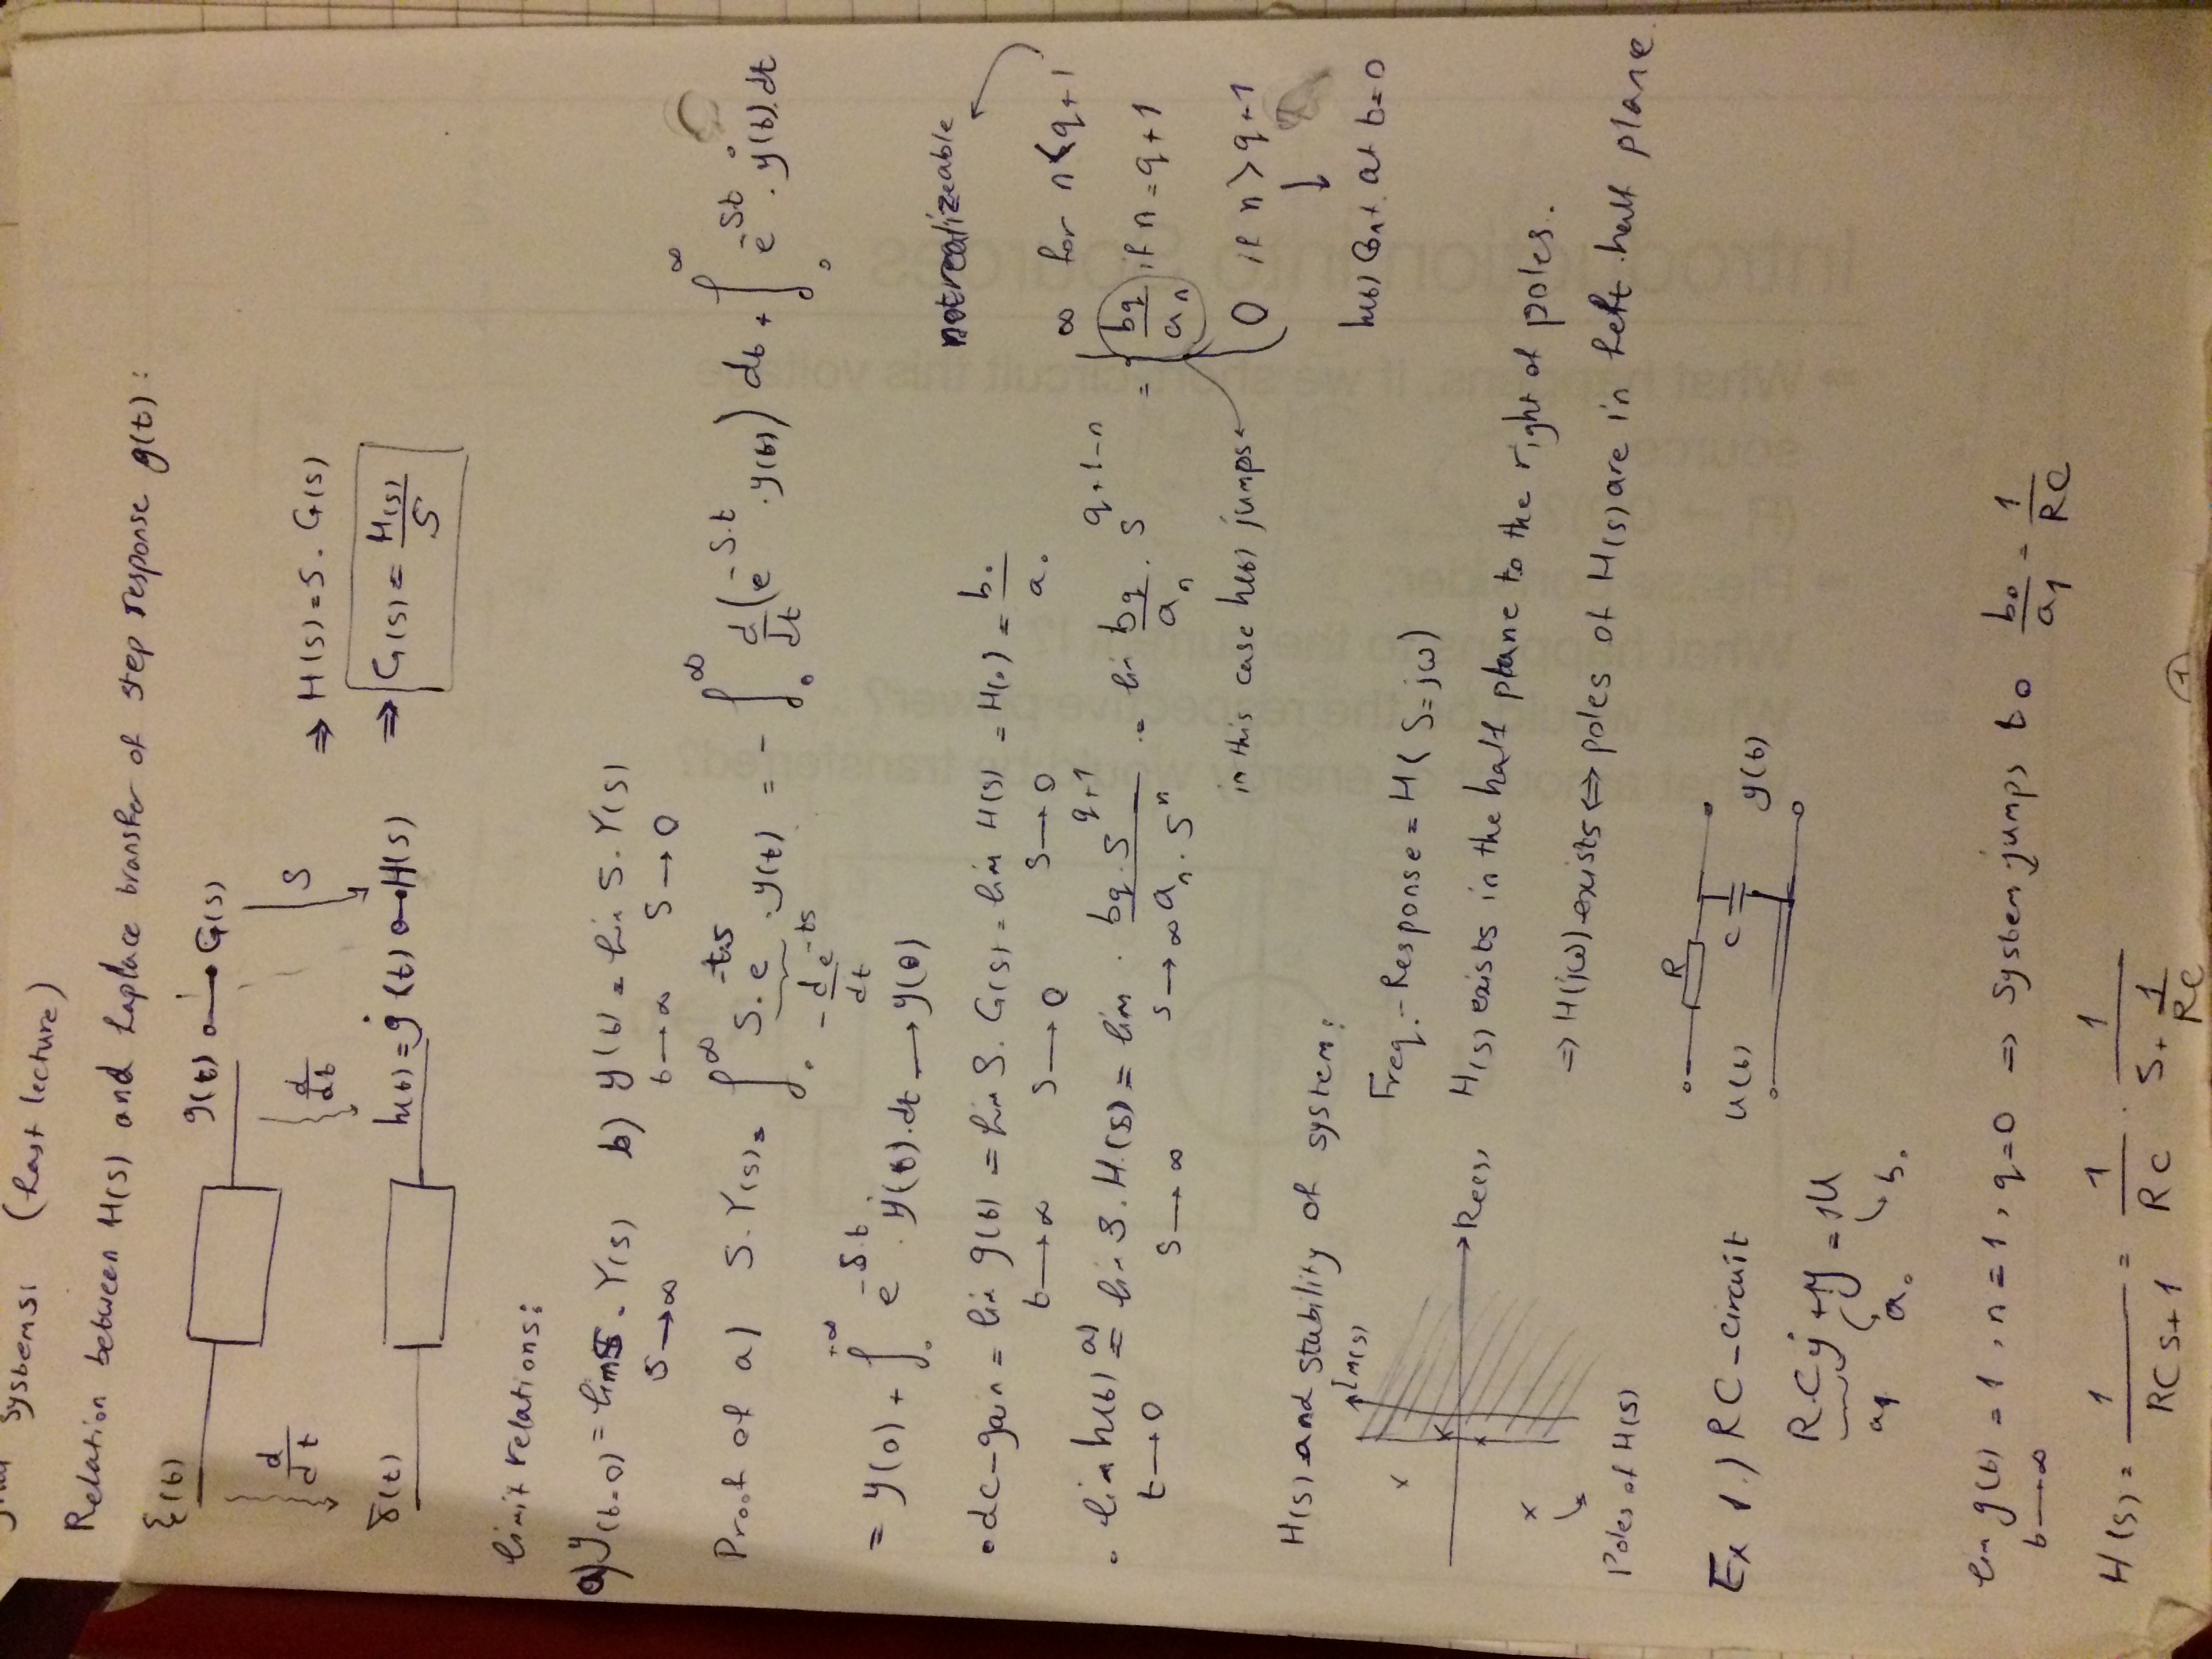 systems: (Last lecture)
Relation between H(s) and Laplace transfer of step response g(t):
ε(t)
g(t) ○—● G(s)
d/dt
d/dt
S
⇒ H(s) = S. G(s)
δ(t)
h(t) = ġ(t) ○—● H(s)
⇒ G(s) = H(s)/S
limit relations:
a) y(t=0) = lim S. Y(s) b) y(t) = lim S. Y(s)
S→∞ t→∞ S→0
Proof of a) S.Y(s) = ∫₀^∞ S. e^-t.s . y(t) = - ∫₀^∞ d/dt (e^-s.t . y(t)) dt + ∫₀^∞ e^-st . ẏ(t).dt
- d/dt e^-ts
= y(0) + ∫₀^+∞ e^-s.t . ẏ(t).dt → y(0)
not realizeable
• dc-gain = lim g(t) = lim S. G(s) = lim H(s) = H(0) = b₀/a₀
t→∞ S→0 S→0
∞ for n<q+1
• lim h(t) =^a) lim S. H.(s) = lim . bq.S^q+1 / an.S^n = lim bq/an . S^q+1-n = { bq/an if n=q+1
t→0 S→∞ s→∞
in this case h(t) jumps ←
0 if n>q+1
h(t) Cont. at t=0
H(s) and stability of system:
Im(s)
Re(s)
Poles of H(s)
Freq.-Response = H( S=jω)
H(s) exists in the half plane to the right of poles.
⇒ H(jω) exists ⇔ poles of H(s) are in left half plane.
Ex 1.) RC-circuit
R
u(t) C y(t)
R.C ẏ + 1y = 1u
a₁ a₀ b₀
lim g(t) = 1, n=1, q=0 ⇒ System jumps to b₀/a₁ = 1/RC
t→∞
H(s) = 1/(RC s+1) = 1/RC . 1/(S+ 1/RC)
1